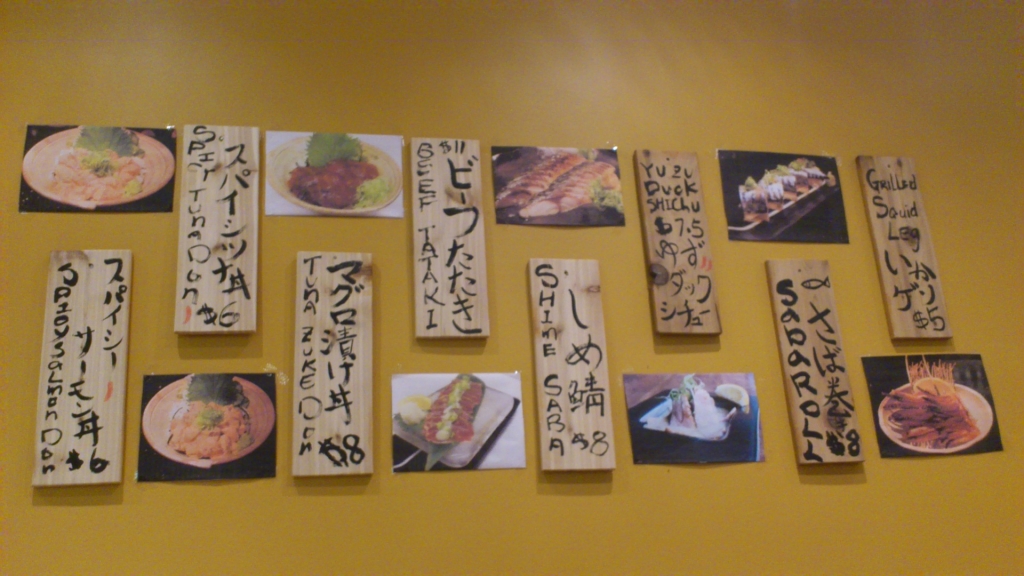 スパイシー
サーモン丼
SPICY SALMON DON
$6
スパイシツナ丼
SPICY TUNA DON
$6
マグロ漬け丼
TUNA ZUKE DON
$8
ビーフたたき
$11
BEEF TATAKI
しめ鯖
SHIME SABA
$8
YUZU
DUCK
SHICHU
$7.5
ゆず
ダック
シチュー
さば巻き
SABA ROLL
$8
GRILLED
SQUID
LEG
いか
ゲソ
$5